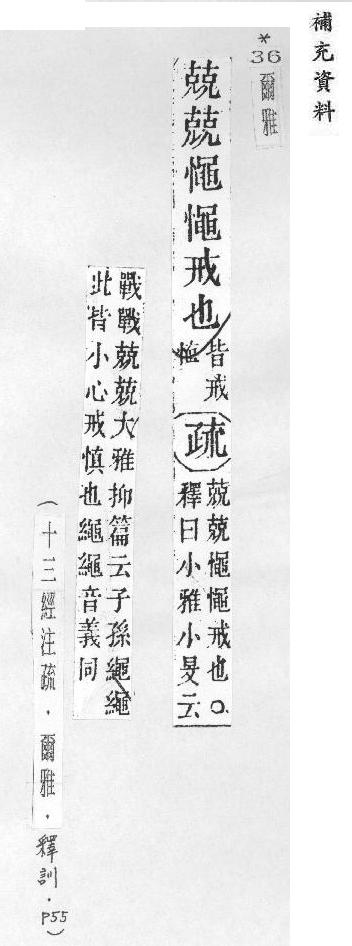 補充資料
*36
爾雅
兢兢憴憴戒也
皆戒
疏
兢兢憴憴戒也○
釋曰小雅小旻云
戰戰兢兢大雅抑篇云子孫繩繩
此皆小心戒慎也繩繩音義同
(十三經注疏．爾雅．釋訓．P55)